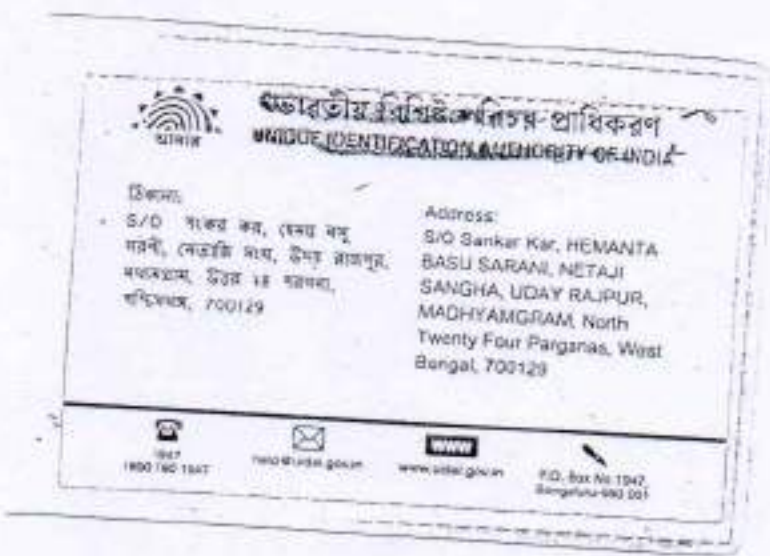 আধার
ভারতীয় বিশিষ্ট পরিচয় প্রাধিকরণ
UNIQUE IDENTIFICATION AUTHORITY OF INDIA
ঠিকানা:
S/O শংকর কর, হেমন্ত বসু
সরণী, নেতাজি সংঘ, উদয় রাজপুর,
মধ্যমগ্রাম, উত্তর ২৪ পরগনা,
পশ্চিমবঙ্গ, 700129
Address:
S/O Sankar Kar, HEMANTA
BASU SARANI, NETAJI
SANGHA, UDAY RAJPUR,
MADHYAMGRAM, North
Twenty Four Parganas, West
Bengal, 700129
1947
1800 180 1947
help@uidai.gov.in
www
www.uidai.gov.in
P.O. Box No.1947,
Bengaluru-560 001